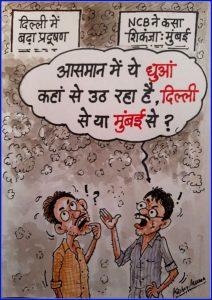 दिल्ली में
बढ़ा प्रदूषण
NCB ने कसा
शिकंजा: मुंबई
आसमान में ये धुआं
कहां से उठ रहा है, दिल्ली
से या मुंबई से ?
! ?